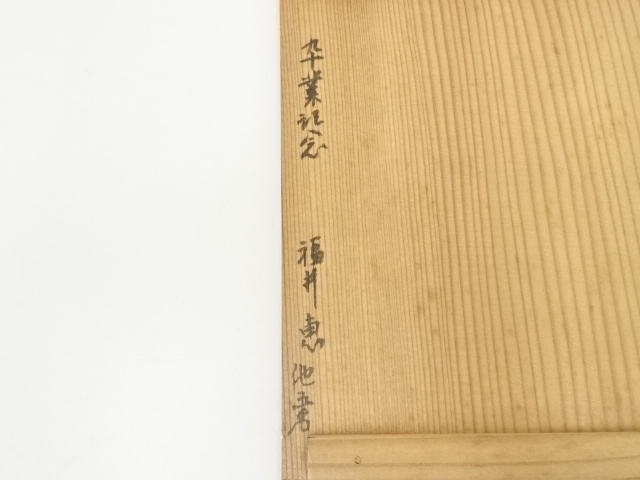 卒業記念 福井恵 他